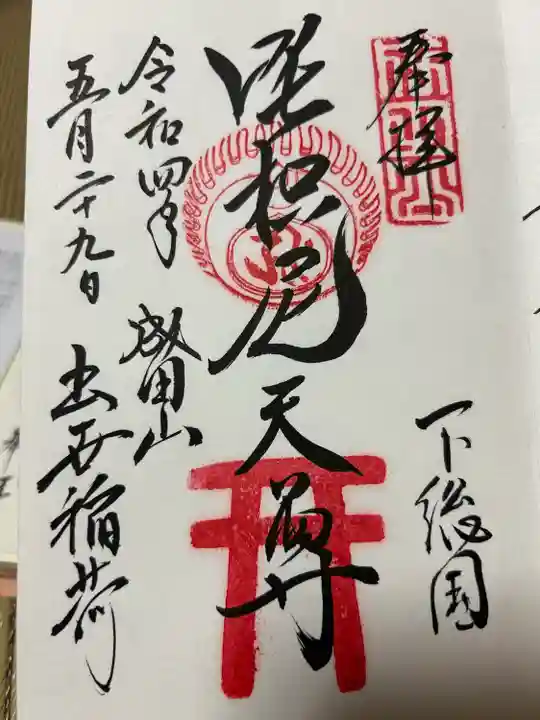 奉拝
下総国
吒枳尼天尊
令和四年
五月二十九日
成田山
出世稲荷